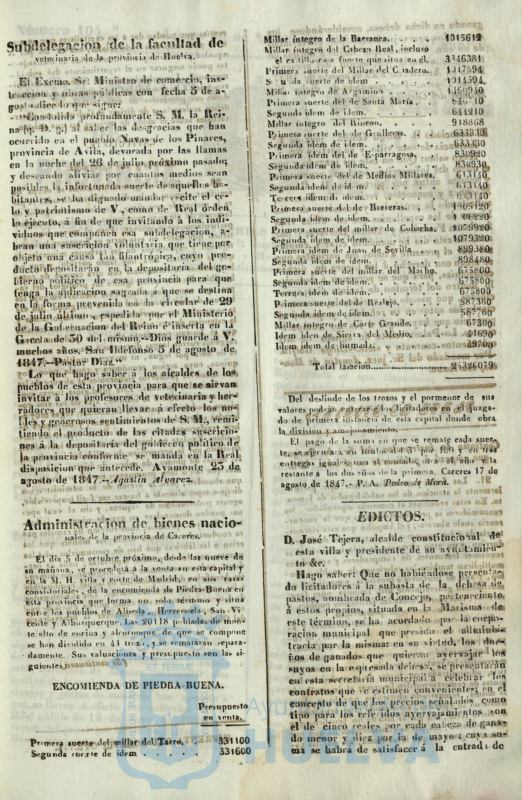 Subdelegacion de la facultad de
veterinaria de la provincia de Huelva.
El Excmo. Sr. Ministro de comercio, ins-
truccion y obras públicas con fecha 5 de a-
gosto dice lo que sigue:
profundamente S. M. la Rei-
na (q. D. g.) al saber las desgracias que han
ocurrido en el pueblo Navas de los Pinares,
provincia de Avila, devorada por las llamas
en la noche del 26 de julio próximo pasado;
y deseando aliviar por cuantos medios sean
posibles la infortunada suerte de aquellos ha-
bitantes, se ha dignado mandar escite el ce-
lo y patriotismo de V., como de Real órden
lo ejecuto, á fin de que invitando á los indi-
viduos que componen esa subdelegacion, a-
bran una suscricion voluntaria, que tiene por
objeto una causa tan filantrópica, cuyo pro-
ducto depositarán en la depositaría del go-
bierno político de esa provincia para que
tenga la aplicacion sagrada á que se destina
en la forma prevenida en la circular de 29
de julio último, espedida por el Ministerio
de la Gobernacion del Reino é inserta en la
Gaceta de 30 del mismo.—Dios guarde á V.
muchos años. San Ildefonso 5 de agosto de
1847.—Pastor Diaz.
Lo que hago saber á los alcaldes de los
pueblos de esta provincia para que se sirvan
invitar á los profesores de veterinaria y her-
radores que quieran llevar á efecto los no-
bles y generosos sentimientos de S. M., remi-
tiendo el producto de las citadas suscricio-
nes á la depositaría del gobierno político de
la provincia conforme se manda en la Real
disposicion que antecede. Ayamonte 23 de
agosto de 1847.—Agustin Alvarez.
Administracion de bienes nacio-
nales de la provincia de Cáceres.
El dia 5 de octubre próximo, desde las nueve de
su mañana, se procederá á la venta en esta capital y
en la M. H. villa y corte de Madrid, en sus casas
consistoriales, de la encomienda de Piedra-Buena en
esta provincia que forma un solo término y situa
entre los pueblos de Aliseda, Herreruela, San Vi-
cente y Alburquerque. Las 20118 pobladas de mon-
te alto de encina y alcornoque de que se compone
se han dividido en 41 trozos, y se rematarán separa-
damente. Sus valuaciones y presupuesto son las si-
guientes.
ENCOMIENDA DE PIEDRA-BUENA.
Presupuesto
en venta.
Primera suerte del millar del Tarro, . 331100
Segunda suerte de idem . . . . . 331600
Millar íntegro de la Barranca. . . . . 1015612
Millar íntegro del Cabezo Real, incluso
el casa fuerte que situa en él. 3346381
Primera suerte del Millar del Cuadero. 1017594
Segunda suerte de idem. . . . . 1014594
Millar íntegro de Argamino . . . . 1460940
Primera suerte del de Santa María. .
Segunda idem de idem. . . . . 644210
Millar íntegro del Rincon. . . . . 918868
Primera suerte del de Grulleras. . . 633330
Segunda idem de idem. . . . . 633330
Primera idem del de Esparragosa. . . 830920
Segunda idem de idem. . . . . 830930
Primera suerte del de Medios Millares. 613140
Segunda idem de idem. . . . . 613140
Tercera idem de idem. . . . . 613130
Primera suerte del de Barreras. . .
Segunda idem de idem. . . . .
Primera suerte del millar de Cobacha. 1079920
Segunda idem de idem. . . . . 1079320
Primera idem de Juan de Sevilla. . . 899380
Segunda idem de idem. . . . . 898480
Primera suerte del millar del Macho. 675800
Segunda idem de idem. . . . . 675800
Tercera idem de idem. . . . . 675800
Primera suerte del de Realejo. . . . 587360
Segunda idem de idem. . . . . 587760
Millar íntegro de Corte Grande. . . 67300
Idem idem de Sierra del Medio. . . 41690
Idem idem de humada. . . . . 49700
Total tasacion
Del deslinde de los trozos y el pormenor de sus
valores podrán enterarse los licitadores en el juzga-
do de primera instancia de esta capital donde obra
la division y amojonamiento.
El pago de la suma en que se remate cada suer-
te, se ejecutará en títulos del 3 por 100 y en tres
entregas iguales: una al contado, otra al año y la
restante á los dos años de la primera. Cáceres 17 de
agosto de 1847.—P. A. Pedro de Mora.
EDICTOS.
D. José Tejera, alcalde constitucional de
esta villa y presidente de su ayuntamien-
to &c.
Hago saber: Que no habiéndose presenta-
do licitadores á la subasta de la dehesa de
pastos, nombrada de Concejo, perteneciente
á estos propios, situada en la Marisma de
este término, se ha acordado por la corpo-
racion municipal que presido el adminis-
trarla por la misma: en su virtud, los due-
ños de ganados que quieran ayervajar los
suyos en la espresada dehesa, se presentarán
en esta secretaría municipal á celebrar los
contratos que se estimen convenientes; en el
concepto de que los precios señalados como
tipo para los referidos ayervajamientos son
el de cinco reales por cada cabeza de gana-
do menor y diez por la de mayo; cuya su-
ma se habrá de satisfacer á la entrada de